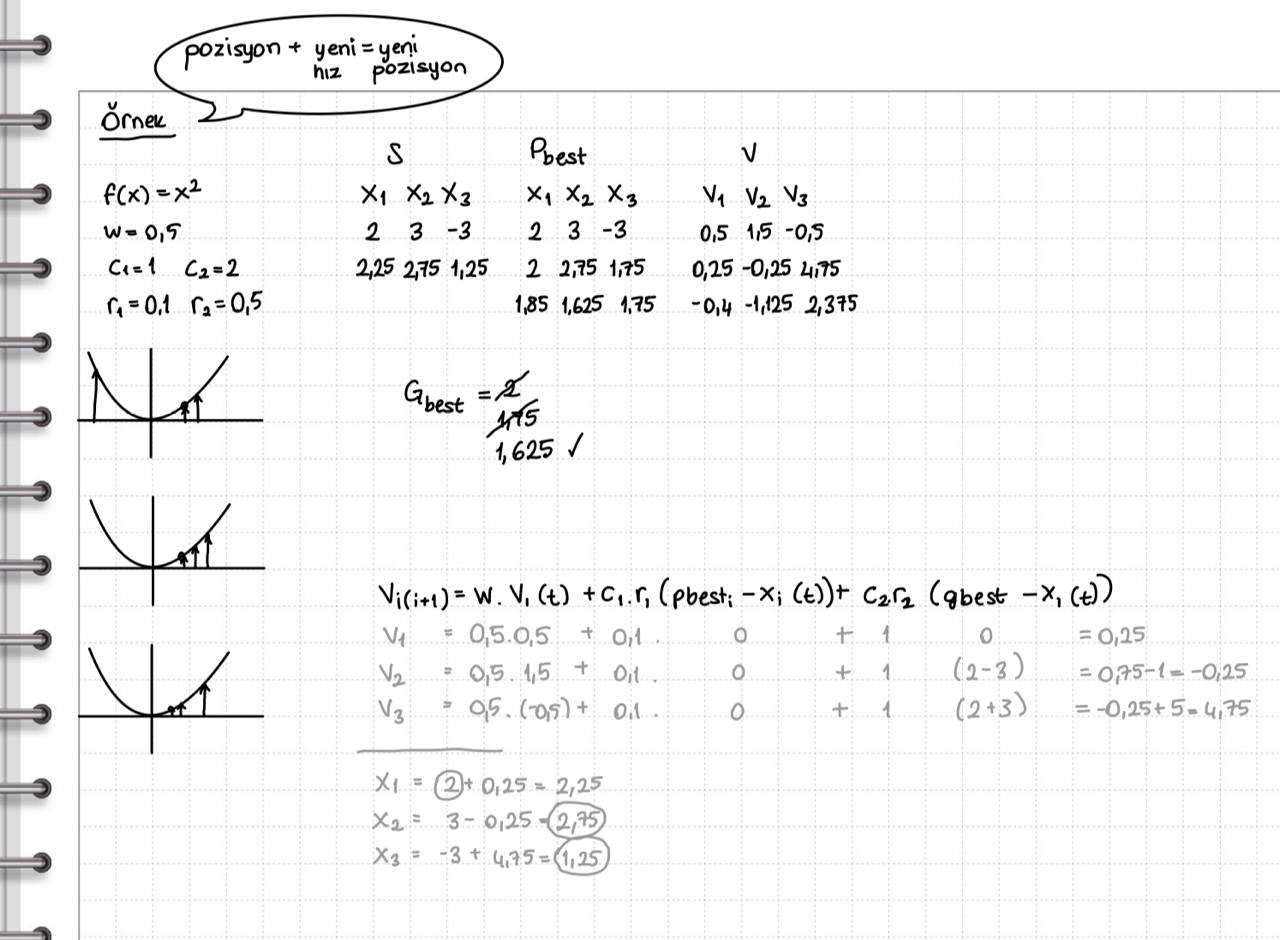 pozisyon + yeni = yeni
hız pozisyon
Örnek
S Pbest V
f(x) = x² X₁ X₂ X₃ X₁ X₂ X₃ V₁ V₂ V₃
w = 0,5 2 3 -3 2 3 -3 0,5 1,5 -0,5
C₁=1 C₂=2 2,25 2,75 1,25 2 2,75 1,75 0,25 -0,25 4,75
r₁ = 0,1 r₂ = 0,5 1,85 1,625 1,75 -0,4 -1,125 2,375
Gbest = 2
1,75
1,625 ✓
Vi(i+1) = W. V₁ (t) + C₁. r₁ (pbestᵢ - xᵢ (t)) + C₂r₂ (gbest - X₁ (t))
V₁ = 0,5.0,5 + 0,1 . 0 + 1 0 = 0,25
V₂ = 0,5. 1,5 + 0,1 . 0 + 1 (2-3) = 0,75-1 = -0,25
V₃ = 0,5. (-0,5) + 0,1 . 0 + 1 (2+3) = -0,25+5 = 4,75
X₁ = 2 + 0,25 = 2,25
X₂ = 3 - 0,25 = 2,75
X₃ = -3 + 4,75 = 1,25